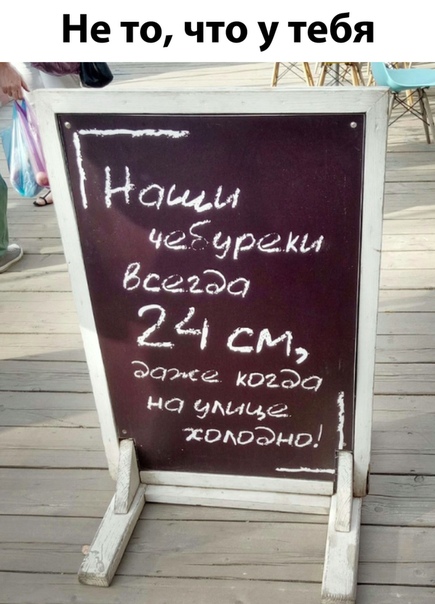 Не то, что у тебя
Наши
чебуреки
всегда
24 см,
даже когда
на улице
холодно!